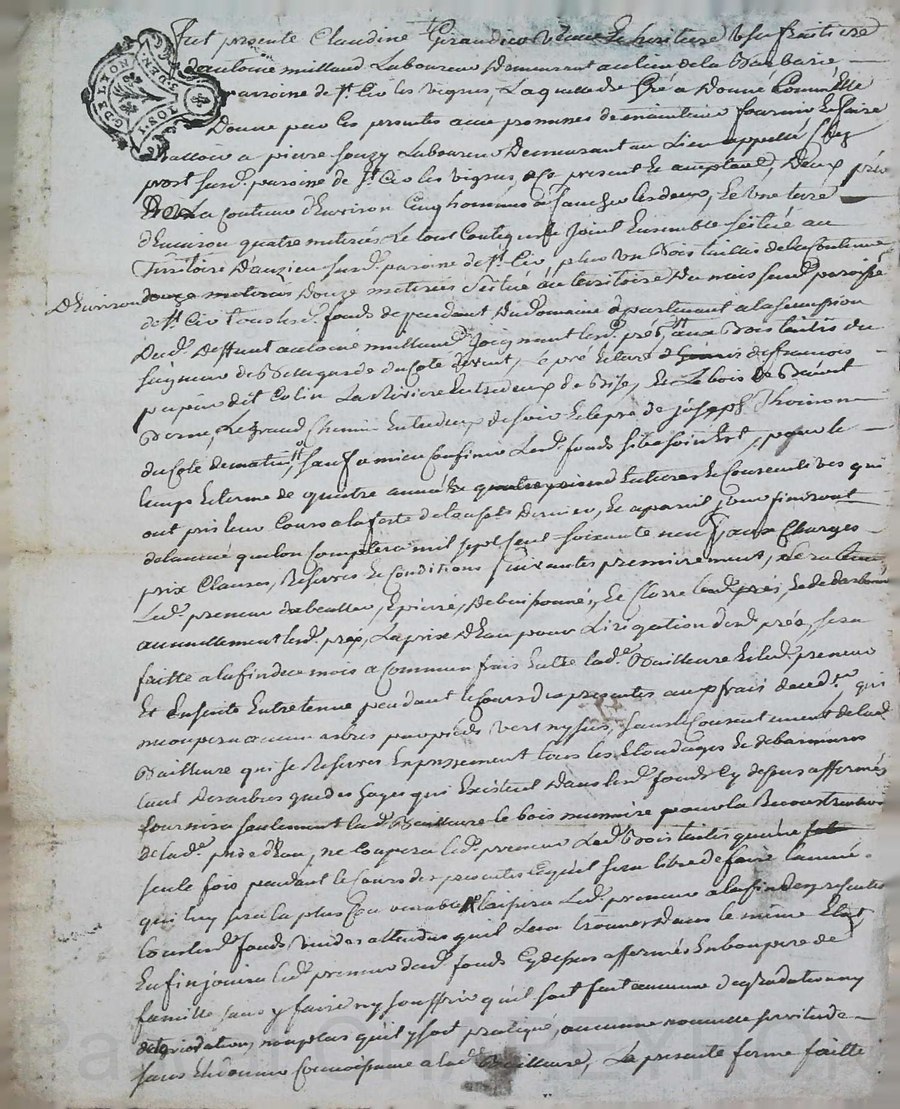 fut presente Claudine Giraudier veuve et heritiere usufruitiere
d'antoine millaud Laboureur demeurant au lieu de la Barbarie
paroisse de st. Cir les vignes, Laquelle de Gré a Donné Comme Elle
Donne par Ces presentes avec promesse de maintenir fournir et faire
valloir a pierre Souzy Laboureur Demeurant au Lieu appellé Chez
prost susd. paroisse de st. Cir les vignes present et acceptant, Deux prés
De La Contenue d'Environ Cinq hommes a faucher les deux, Et une terre
d'Environ quatre meterées Le tout Contigu et Joint Ensemble Scitué au
Territoire D'auzieu susd. paroisse de st. Cir, plus un Bois taillis de la Contenue
D'Environ
Douze meterées Scitué au territoire Du mais susd. paroisse
de st. Cir tous lesd. fonds dependant Du Domaine apartenant a la succession
Dud. Deffunt antoine millaud, Joignant lesd. prés aux Bois taillis du
seigneur de Bellegarde du Coté de vent, Le pré Et terre de francois
papon dit Colin La Riviere Entredeux de Bise, Et Le bois de Benoit
Berne, Le grand Chemin Entredeux de soir Et le pré de joseph Thoinon
du Coté de matin, sauf a mieux Confiner Lesd. fonds si besoin Est, pour le
temps et terme de quatre années Entieres et Consecutives qui
ont pris leur Cours a la feste de toussts Dernier, Et a pareil jour finiront
de l'année que l'on Comptera mil sept cent soixante neuf, aux Charges
prix Clauses, Reserves et Conditions suivantes premierement,
Led. preneur Epierré, Debuissonné, et Clorre lesd. prés,
annuellement lesd. prés, La prise D'Eau pour L'irigation desd. prés, sera
faitte a la fin de ce mois a Commun frais Entre lad. Bailleure Et led. preneur
Et Ensuite Entretenue pendant le Cours des presentes aux frais dud. qui
ne coupera aucun arbres par pieds vert ny sec, sans le Consentement de lad.
Bailleure qui se Reserve Expressement tous les Elondages
tant des arbres que des hayes qui Existent Dans lesd. fonds Cy dessus affermés
fournira seulement lad. Bailleure le bois necessaire pour la Reconstruction
de lad. prise d'Eau, ne Coupera led. preneur Led. Bois taillis qu'une
seule fois pendant le Cours des presentes Ce qu'il sera libre de faire l'année
qui luy sera la plus favorable, Laissera Led. preneur a la fin des presentes
tous lesd. fonds vuides attendu qu'il Les a trouvés Dans le même Etat
Enfin jouira led. preneur desd. fonds Cy dessus affermés En bon pere de
famille sans y faire ny souffrir qu'il soit fait aucune degradation ny
deterioration, non plus qu'il y soit pratiqué, aucune nouvelle servitude
sans En donner Connoissance a lad. Bailleure, La presente ferme faitte